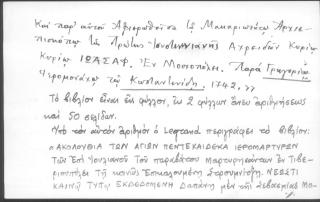 Καὶ παρ' αὐτοῦ Ἀφιερωθεῖσα τῷ Μακαριωτάτῳ Ἀρχιε-
πισκόπῳ τῆς Πρώτης Ἰουστινιανῆς Ἀχρειδῶν Κυρίῳ
Κυρίῳ ΙΩΑΣΑΦ. Ἐν Μοσχοπόλει. Παρὰ Γρηγορίῳ
Ἱερομονάχῳ τῷ Κωνσταντινίδῃ. 1742, »
Τὸ βιβλίον εἶναι εἰς φύλλον, 2 φύλλων ἄνευ ἀριθμήσεως
καὶ 50 σελίδων.
Ὑπὸ τὸν αὐτὸν ἀριθμὸ ὁ Legrand περιγράφει τὸ βιβλίον:
« ΑΚΟΛΟΥΘΙΑ ΤΩΝ ΑΓΙΩΝ ΠΕΝΤΕΚΑΙΔΕΚΑ ΙΕΡΟΜΑΡΤΥΡΩΝ
τῶν Ἐπὶ Ἰουλιανοῦ τοῦ παραβάτου μαρτυρησάντων ἐν Τιβε-
ριουπόλει τῇ κοινῶς Ἐπονομαζομένῃ Στρουμνίτζῃ. ΝΕΩΣΤΙ
ΚΑΙ ΤΥΠΩ ΕΚΔΕΔΟΜΕΝΗ Δαπάνῃ μὲν τῆς Σεβασμίας Μο-